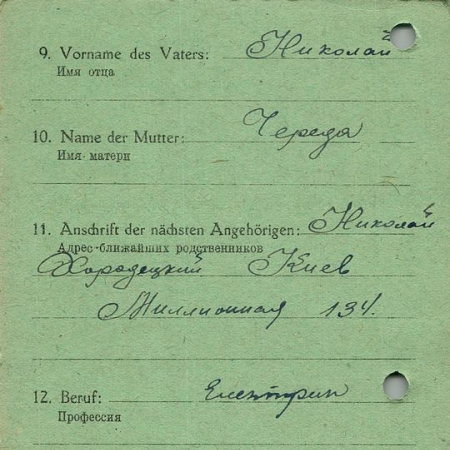 9. Vorname des Vaters: Николай
Имя отца
10. Name der Mutter: Череда
Имя матери
11. Anschrift der nächsten Angehörigen: Николай
Адрес ближайших родственников
Хородецкий Киев
Миллионная 134.
12. Beruf: Електрик
Профессия